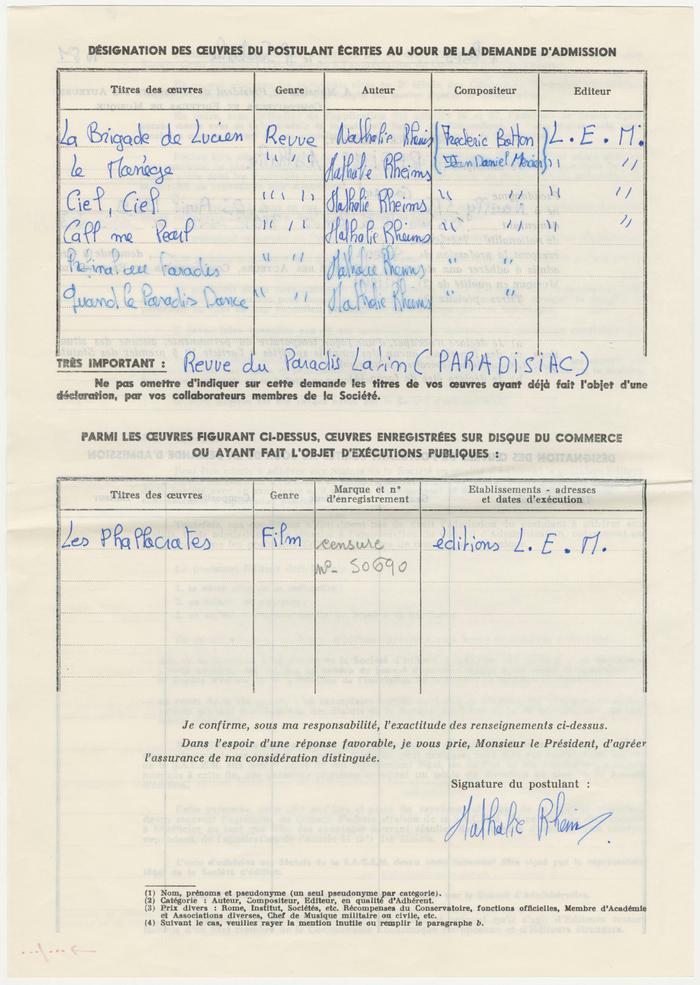 DÉSIGNATION DES ŒUVRES DU POSTULANT ÉCRITES AU JOUR DE LA DEMANDE D'ADMISSION
Titres des œuvres Genre Auteur Compositeur Editeur
La Brigade de Lucien Revue Nathalie Rheims (Frederic Botton) L. E. M.
Le Manège " " Nathalie Rheims Jean Daniel Mercier " "
Ciel, Ciel " " Nathalie Rheims " " " "
Call me Pearl " " Nathalie Rheims " " " "
au Paradis " " Nathalie Rheims " "
Quand le Paradis Dance " " Nathalie Rheims " "
TRÈS IMPORTANT : Revue du Paradis Latin (PARADISIAC)
Ne pas omettre d'indiquer sur cette demande les titres de vos œuvres ayant déjà fait l'objet d'une
déclaration, par vos collaborateurs membres de la Société.
PARMI LES ŒUVRES FIGURANT CI-DESSUS, ŒUVRES ENREGISTRÉES SUR DISQUE DU COMMERCE
OU AYANT FAIT L'OBJET D'EXÉCUTIONS PUBLIQUES :
Titres des œuvres Genre Marque et n° d'enregistrement Etablissements - adresses et dates d'exécution
Les Phallocrates Film censure éditions L. E. M.
n° 50690
Je confirme, sous ma responsabilité, l'exactitude des renseignements ci-dessus.
Dans l'espoir d'une réponse favorable, je vous prie, Monsieur le Président, d'agréer
l'assurance de ma considération distinguée.
Signature du postulant :
Nathalie Rheims
(1) Nom, prénoms et pseudonyme (un seul pseudonyme par catégorie).
(2) Catégorie : Auteur, Compositeur, Editeur, en qualité d'Adhérent.
(3) Prix divers : Rome, Institut, Sociétés, etc. Récompenses du Conservatoire, fonctions officielles, Membre d'Académie
et Associations diverses, Chef de Musique militaire ou civile, etc.
(4) Suivant le cas, veuillez rayer la mention inutile ou remplir le paragraphe b.